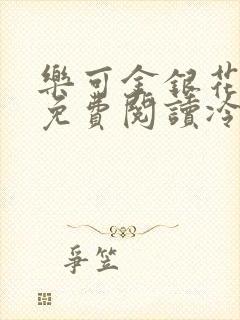 樂可金銀花
免費閱讀冷
爭笠